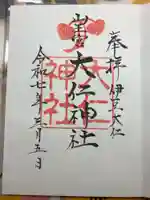 奉拝 伊豆大仁
大仁神社
大仁
神社
令和七年 月五日